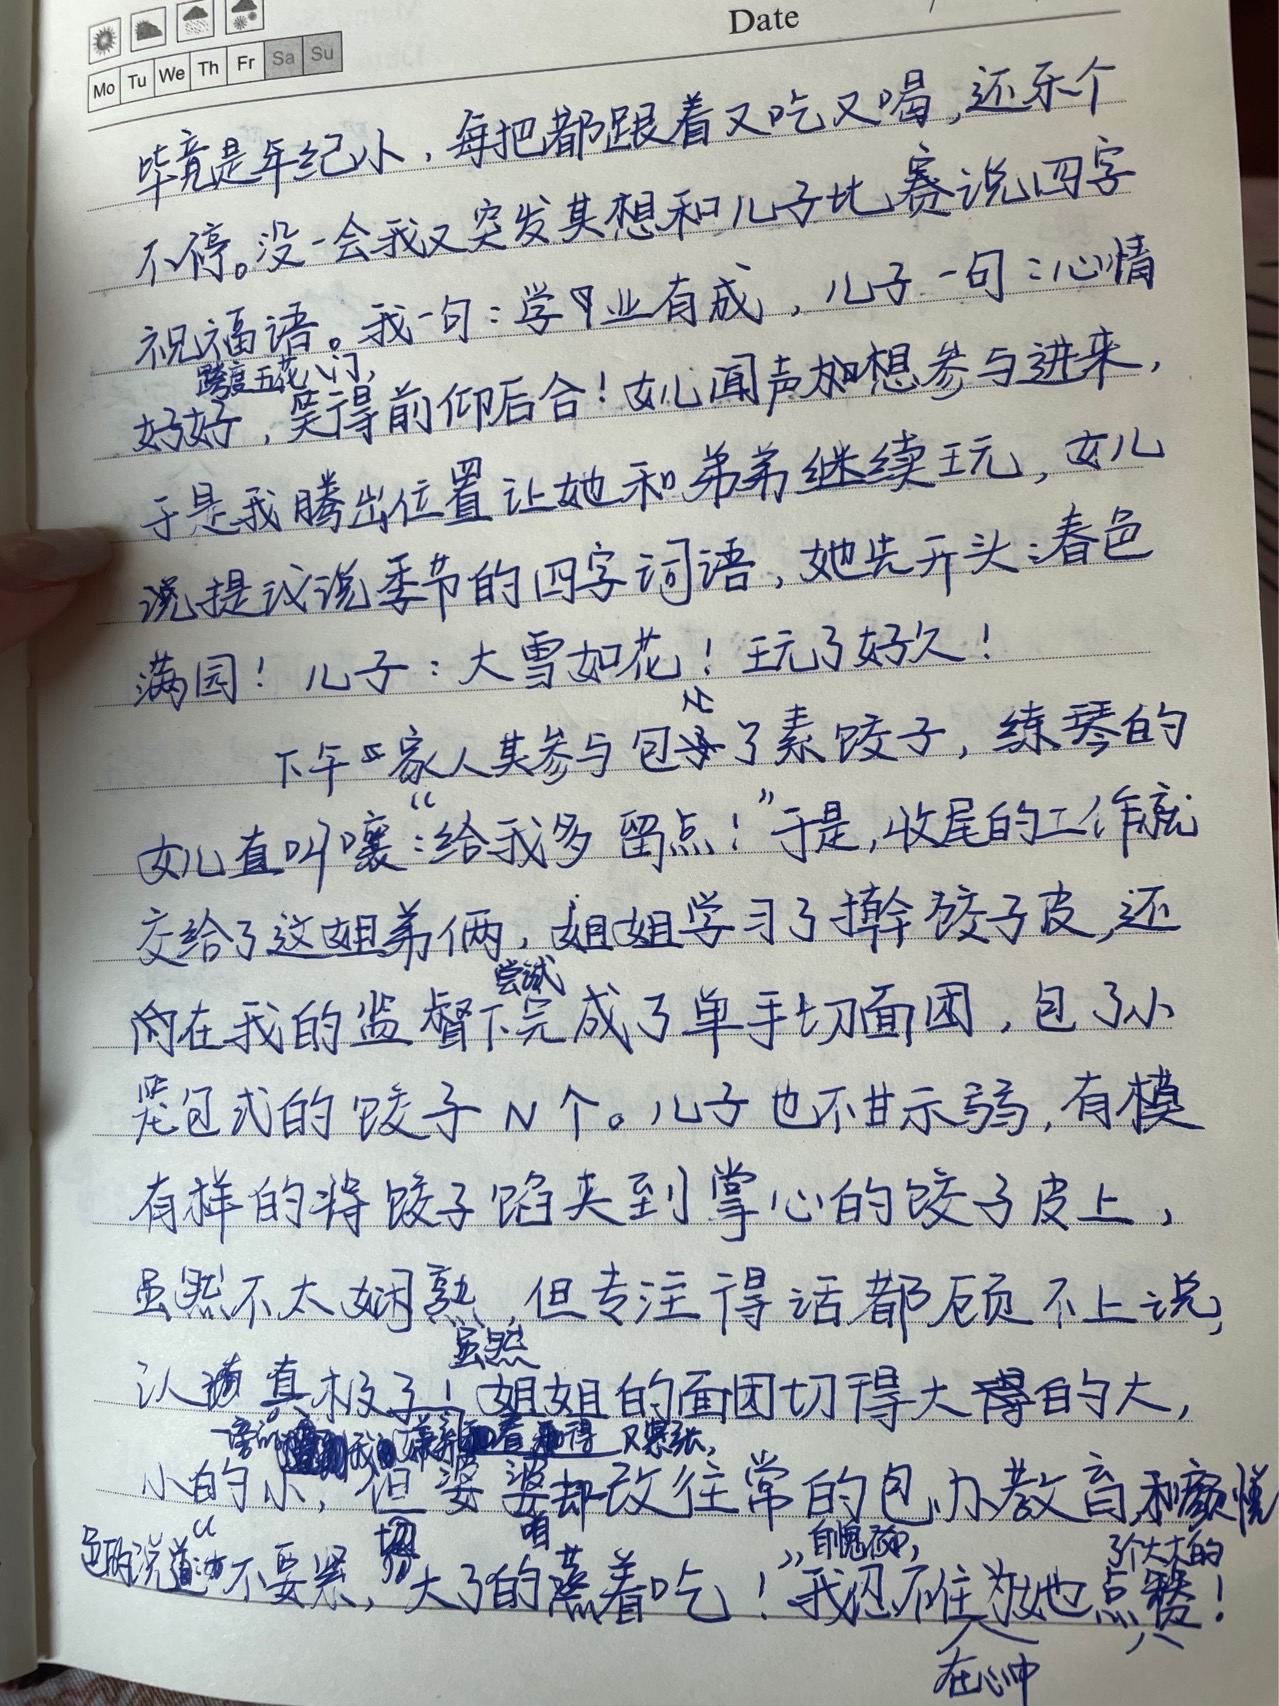 Date
Mo Tu We Th Fr Sa Su
毕竟是年纪小，每把都跟着又吃又喝，还乐个
不停。没一会我又突发其想和儿子比赛说四字
祝福语。我一句：学业有成，儿子一句：心情
跨度五花八门，
好好，笑得前仰后合！女儿闻声想参与进来，
于是我腾出位置让她和弟弟继续玩，女儿
提议说季节的四字词语，她先开头：春色
满园！儿子：大雪如花！玩了好久！
下午一家人共参与包了素饺子，练琴的
女儿直叫嚷：“给我多留点！”于是，收尾的工作就
交给了这姐弟俩，姐姐学习了擀饺子皮，还
尝试
在我的监督下完成了单手切面团，包了小
笼包式的饺子N个。儿子也不甘示弱，有模
有样的将饺子馅夹到掌心的饺子皮上，
虽然不太娴熟，但专注得话都顾不上说，
虽然
认真极了！姐姐的面团切得大的大，
看得又紧张，
小的小，但婆婆却改往常的包办教育，和颜悦
色的说道：“不要紧，切大了的咱蒸着吃！”
自愧不如，
了个大大的
我忍不住为她点赞！
在心中